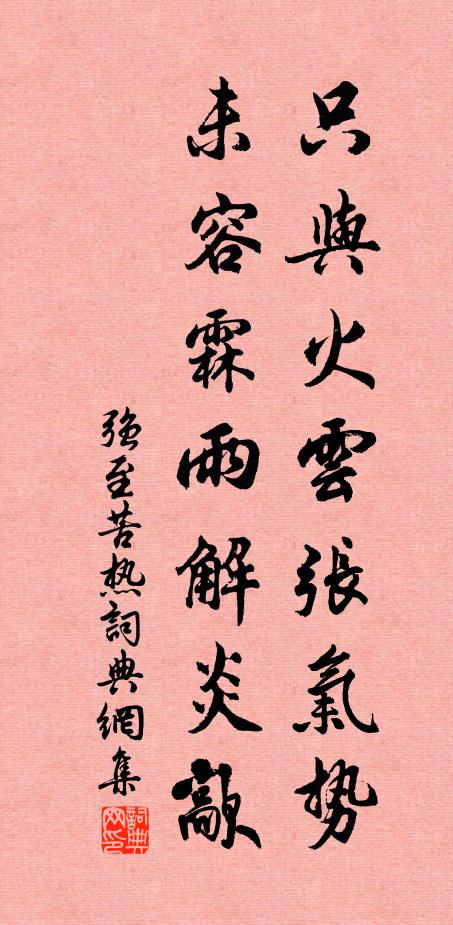 只與火雲張氣势
未容霖雨解炎歊
強至苦热詞典網集
詞典网印